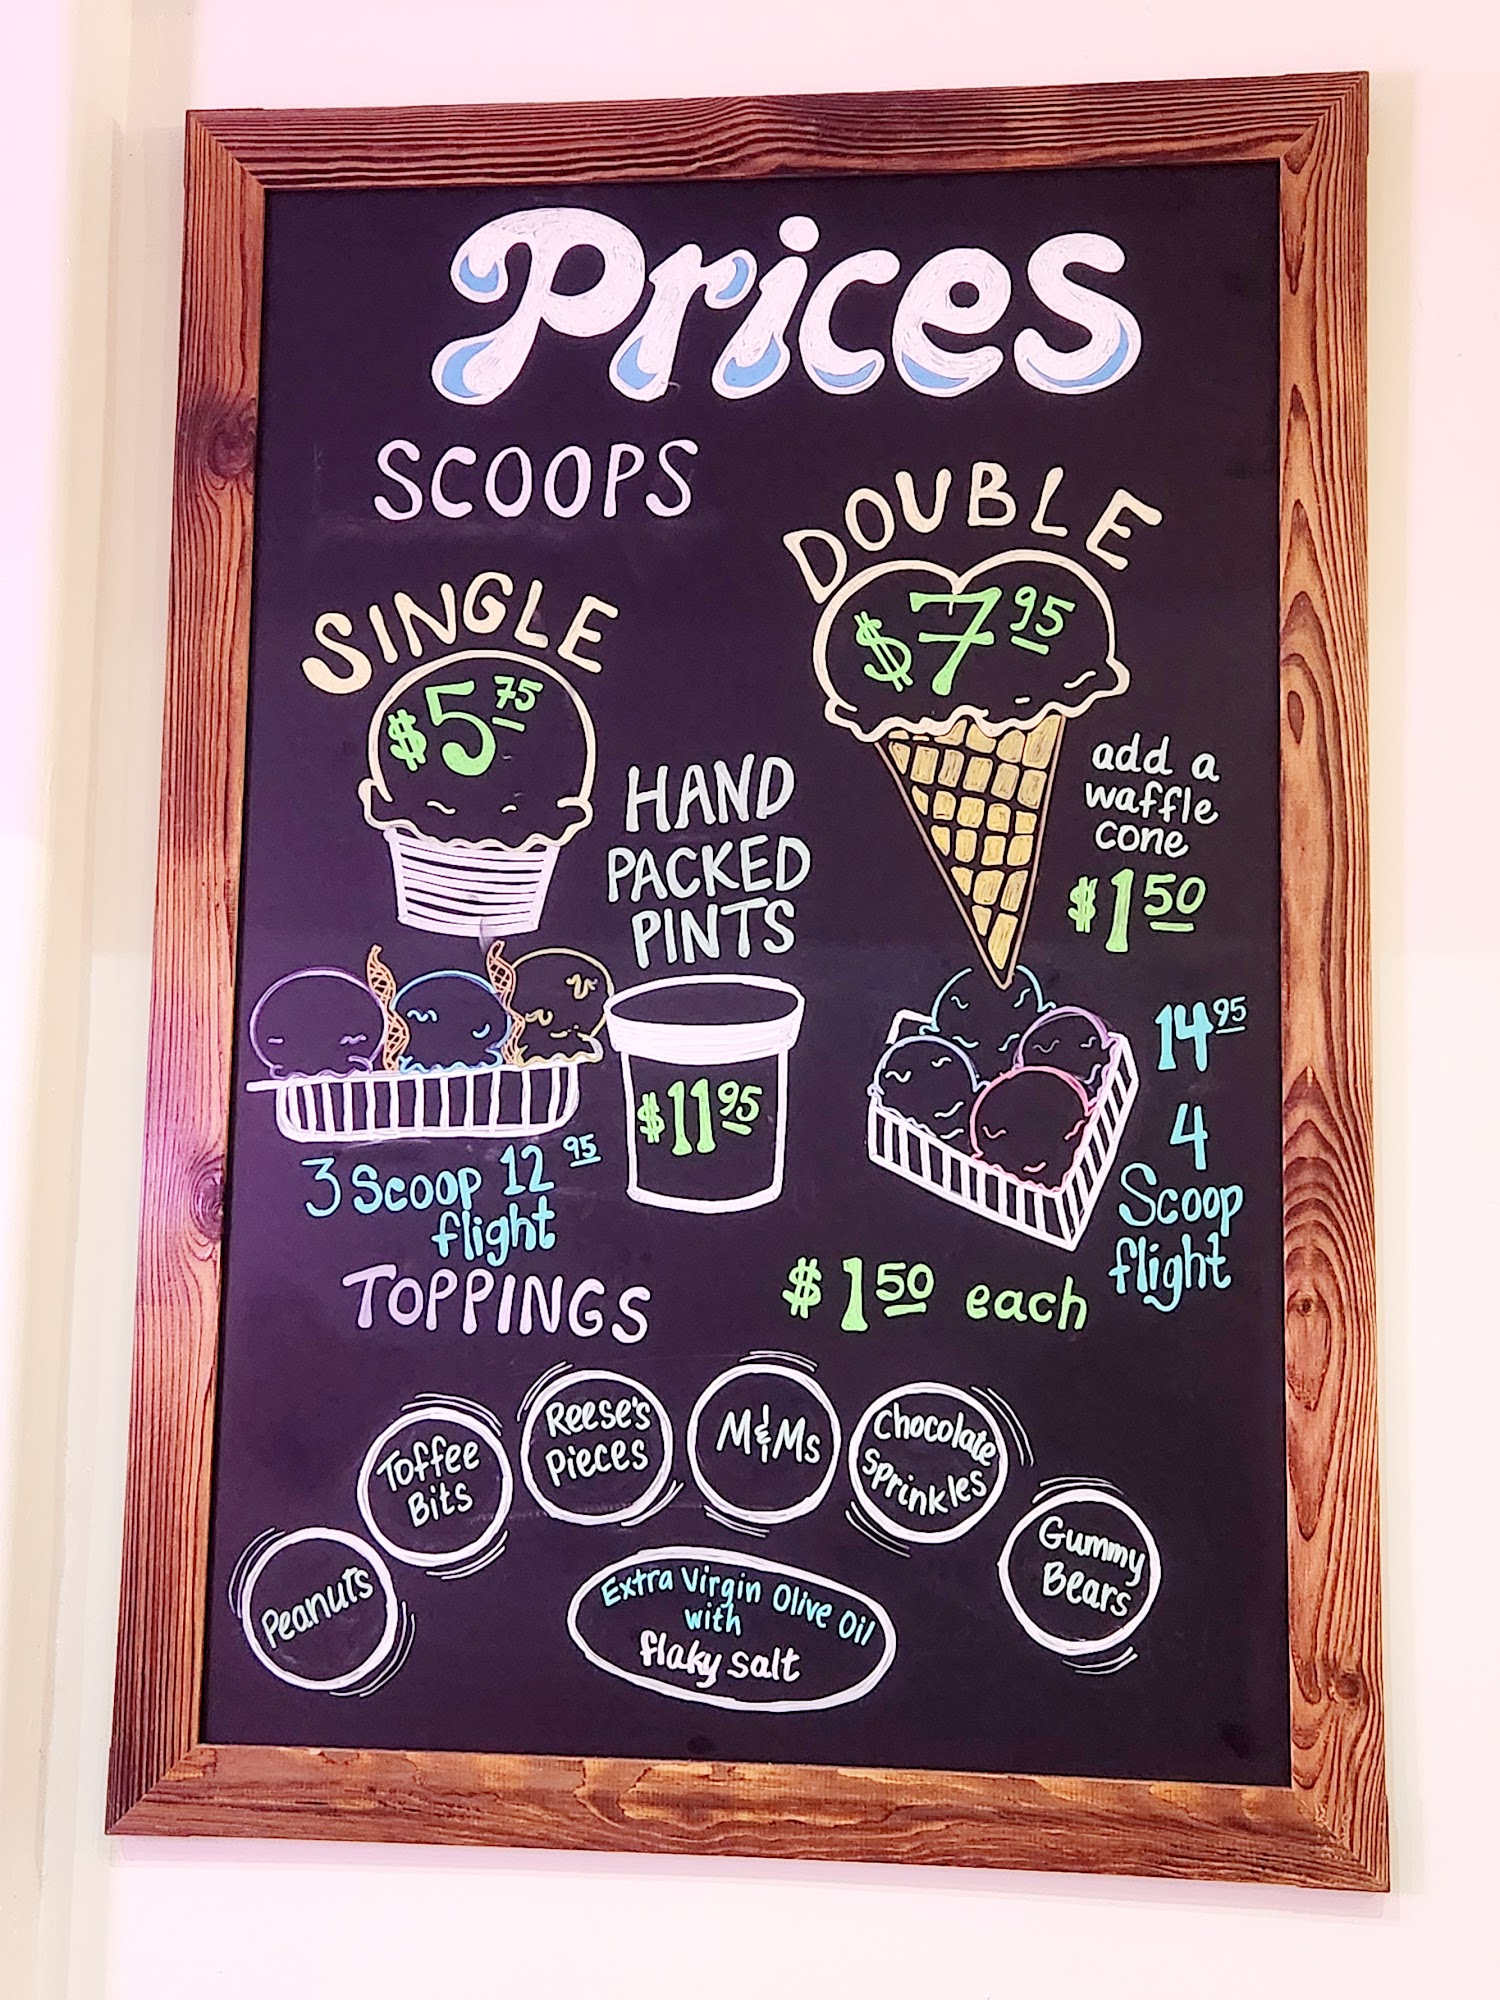 Prices
SCOOPS
SINGLE
$5 75
DOUBLE
$7 95
add a
waffle
cone
$1 50
HAND
PACKED
PINTS
$11 95
3 Scoop 12 95
flight
14 95
4
Scoop
flight
TOPPINGS
$1 50 each
Peanuts
Toffee
Bits
Reese's
Pieces
M&Ms
Chocolate
Sprinkles
Gummy
Bears
Extra Virgin Olive Oil
with
flaky salt